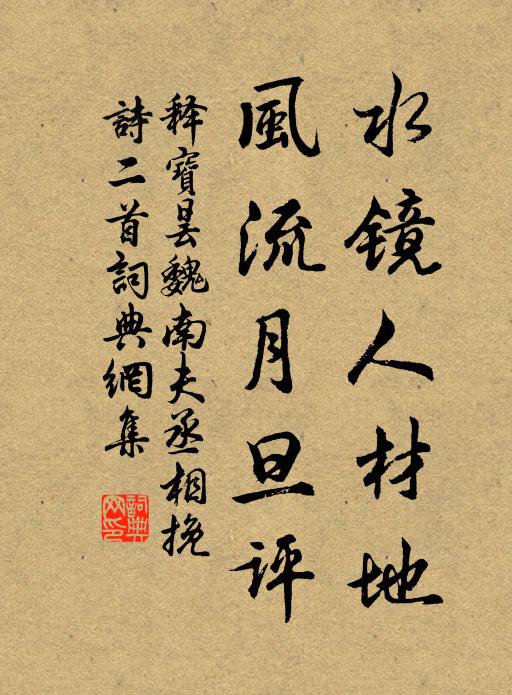 水镜人材地
風流月旦評
释寶曇魏南夫丞相挽
詩二首詞典網集
詞典網印